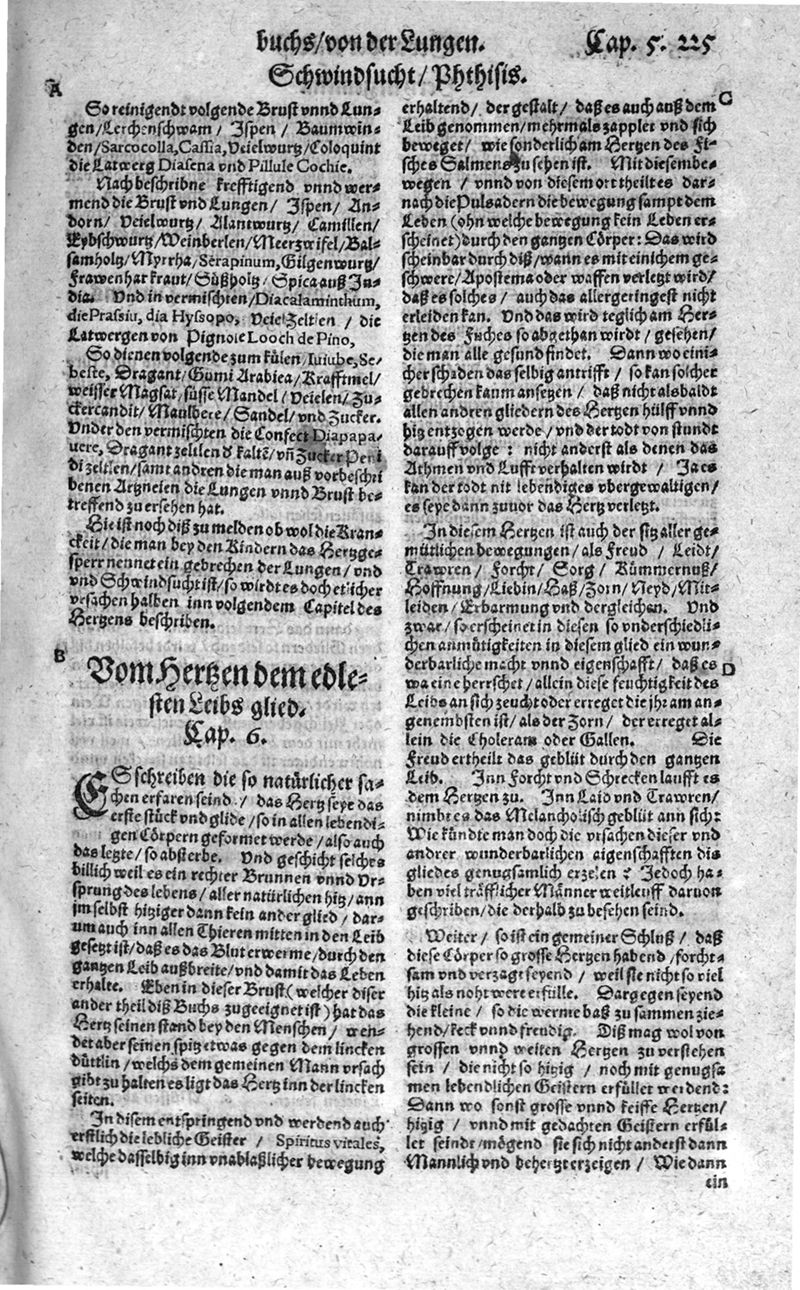 buchs/von der Lungen. Cap. 5. 225
Schwindsucht/Phthisis.
A
So reinigendt volgende Brust vnnd Lun-
gen/Lerchenschwam/ Ispen/ Baumwin-
den/Sarcocolla, Cassia, Veielwurtz/Coloquint
die Latwerg Diasena vnd Pillule Cochie.
Nach beschribne krefftigend vnnd wer-
mend die Brust vnd Lungen/ Ispen/ An-
dorn/ Veielwurtz/ Alantwurtz/ Camillen/
Eybschwurtz/Weinberlen/Meerzwifel/Bal-
samholtz/Myrrha/Serapinum, Gilgenwurtz/
Frawenhar kraut/Süßholtz/Spica auß In-
dia. Vnd in vermischten/Diacalaminthum,
die Prassiu, dia Hyssopo, Veiel Zeltlen / die
Latwergen von Pignole Looch de Pino,
So dienen volgende zum külen/Iuiube, Se-
beste, Dragant/Gumi Arabica/Krafftmel/
weisser Magsat/süsse Mandel/Veielen/Zu-
ckercandit/Maulbere/Sandel/vnd Zucker.
Vnder den vermischten die Confect Diapapa-
uere, Dragant zeltlen d kaltē/ vñ Zucker Peni
di zeltlen/samt andren die man auß vorbeschri
benen Artzneien die Lungen vnnd Brust be-
treffend zu ersehen hat.
Hie ist noch diß zu melden ob wol die Kran-
ckeit/die man bey den Kindern das Hertzge-
sperr nennet ein gebrechen der Lungen/vnd
vnd Schwindsucht ist/so wirdt es doch etlicher
vrsachen halben inn volgendem Capitel des
Hertzens beschriben.
B
Vom Hertzen dem edle-
sten Leibs glied.
Cap. 6.
ES schreiben die so natürlicher sa-
chen erfaren seind / das Hertz seye das
erste stück vnd glide/so in allen lebendi-
gen Cörpern geformet werde/also auch
das letzte/so absterbe. Vnd geschicht solches
billich weil es ein rechter Brunnen vnnd Vr-
sprung des lebens/aller natürlichen hitz/ann
im selbst hitziger dann kein ander glied/ dar-
um auch inn allen Thieren mitten in den Leib
gesetzt ist/daß es das Blut erwerme/durch den
gantzen Leib außbreite/vnd damit das Leben
erhalte. Eben in dieser Brust (welcher diser
ander theil diß Buchs zugeeignet ist) hat das
Hertz seinen stand bey den Menschen/ wen-
det aber seinen spitz etwas gegen dem lincken
düttlin/welchs dem gemeinen Mann vrsach
gibt zu halten es ligt das Hertz inn der lincken
seiten.
In disem entspringend vnd werdend auch
erstlich die lebliche Geister / Spiritus vitales,
welche dasselbig inn vnablaßlicher bewegung
C
erhaltend/ der gestalt/ daß es auch auß dem
Leib genommen/mehrmals zapplet vnd sich
beweget/ wie sonderlich am Hertzen des Fi-
sches Salmens zu sehen ist. Mit diesem be-
wegen / vnnd von diesem ort theilt es dar-
nach die Pulsadern die bewegung sampt dem
Leben (ohn welche bewegung kein Leben er-
scheinet) durch den gantzen Cörper: Das wird
scheinbar durch diß/wann es mit einichem ge-
schwere/Apostema oder waffen verletzt wird/
daß es solches / auch das allergeringest nicht
erleiden kan. Vnd das wird teglich am Her-
tzen des Fuches so abgethan wirdt/ gesehen/
die man alle gesund findet. Dann wo eini-
cher schaden das selbig antrifft/ so kan solcher
gebrechen kaum ansetzen / daß nicht als baldt
allen andren gliedern des Hertzen hülff vnnd
hitz entzogen werde/ vnd der todt von stundt
darauff volge : nicht anderst als denen das
Athmen vnd Lufft verhalten wirdt / Ja es
kan der todt nit lebendiges vbergewaltigen/
es seye dann zuuor das Hertz verletzt.
In diesem Hertzen ist auch der sitz aller ge-
mütlichen bewegungen/als Freud / Leidt/
Trawren/ Forcht/ Sorg/ Kümmernuß/
Hoffnung/Liebin/Haß/Zorn/Neyd/Mit-
leiden/Erbarmung vnd dergleichen. Vnd
zwar/so erscheinet in diesen so vnderschiedli-
chen anmütigkeiten in diesem glied ein wun-
derbarliche macht vnnd eigenschafft/ daß es
D
wa eine herrschet/allein diese feuchtigkeit des
Leibs an sich zeucht oder erreget die jhr am an-
genembsten ist/als der Zorn/ der erreget al-
lein die Choleram oder Gallen. Die
Freud ertheilt das geblüt durch den gantzen
Leib. Inn Forcht vnd Schrecken laufft es
dem Hertzen zu. Inn Laid vnd Trawren/
nimbt es das Melancholisch geblüt ann sich:
Wie kündte man doch die vrsachen dieser vnd
andrer wunderbarlichen aigenschafften dis
gliedes genugsamlich erzelen ? Jedoch ha-
ben viel träfflicher Männer weitleuff daruon
geschriben/die derhalb zu besehen seind.
Weiter / so ist ein gemeiner Schluß / daß
diese Cörper so grosse Hertzen habend/forcht-
sam vnd verzagt seyend / weil sie nicht so viel
hitz als noht were erfülle. Dargegen seyend
die kleine / so die werme baß zu sammen zie-
hend/keck vnnd freudig. Diß mag wol von
grossen vnnd weiten Hertzen zu verstehen
sein / die nicht so hitzig / noch mit genugsa
men lebendlichen Geistern erfüllet werdend:
Dann wo sonst grosse vnnd keiffe Hertzen/
hitzig / vnnd mit gedachten Geistern erfül-
let seindt/mögend sie sich nicht anderst dann
Mannlich vnd behertzt erzeigen / Wie dann
ein